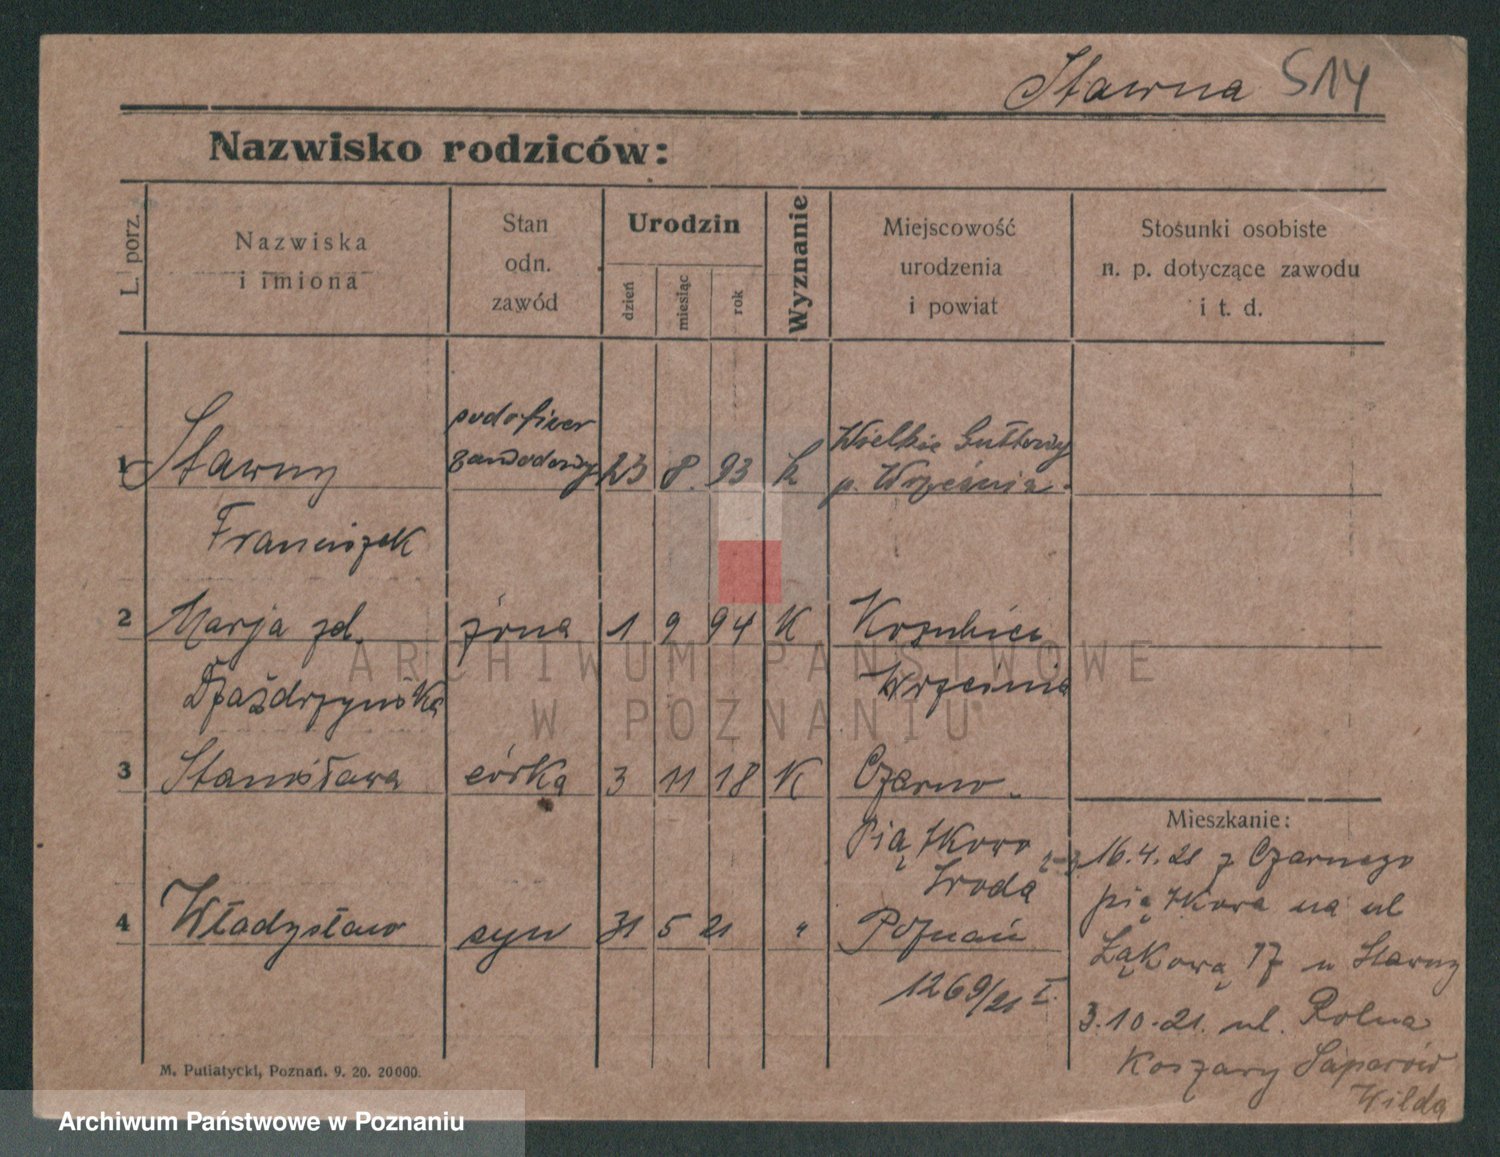 Stawna S14
Nazwisko rodziców:
L. porz.
Nazwiska
i imiona
Stan
odn.
zawód
Urodzin
dzień
miesiąc
rok
Wyznanie
Miejscowość
urodzenia
i powiat
Stosunki osobiste
n. p. dotyczące zawodu
i t. d.
podoficer
1 Stawny zawodowy 23 8 93 k Wielkie Gułtowy
p. Września
Franciszek
2 Marja zd. żona 1 9 94 K
Września
3 Stanisława córka 3 11 18 K Czarno
Piątkowo
Środa
4 Władysław syn 31 5 21 " Poznań
1269/21 I.
Mieszkanie:
16.4.21 z Czarnego
piątkowa na ul
Łąkową 17 u Stawny
3.10.21. ul. Rolna
Koszary Saperów
Wilda
M. Putiatycki, Poznań. 9. 20. 20000.
ARCHIWUM PAŃSTWOWE
W POZNANIU
Archiwum Państwowe w Poznaniu